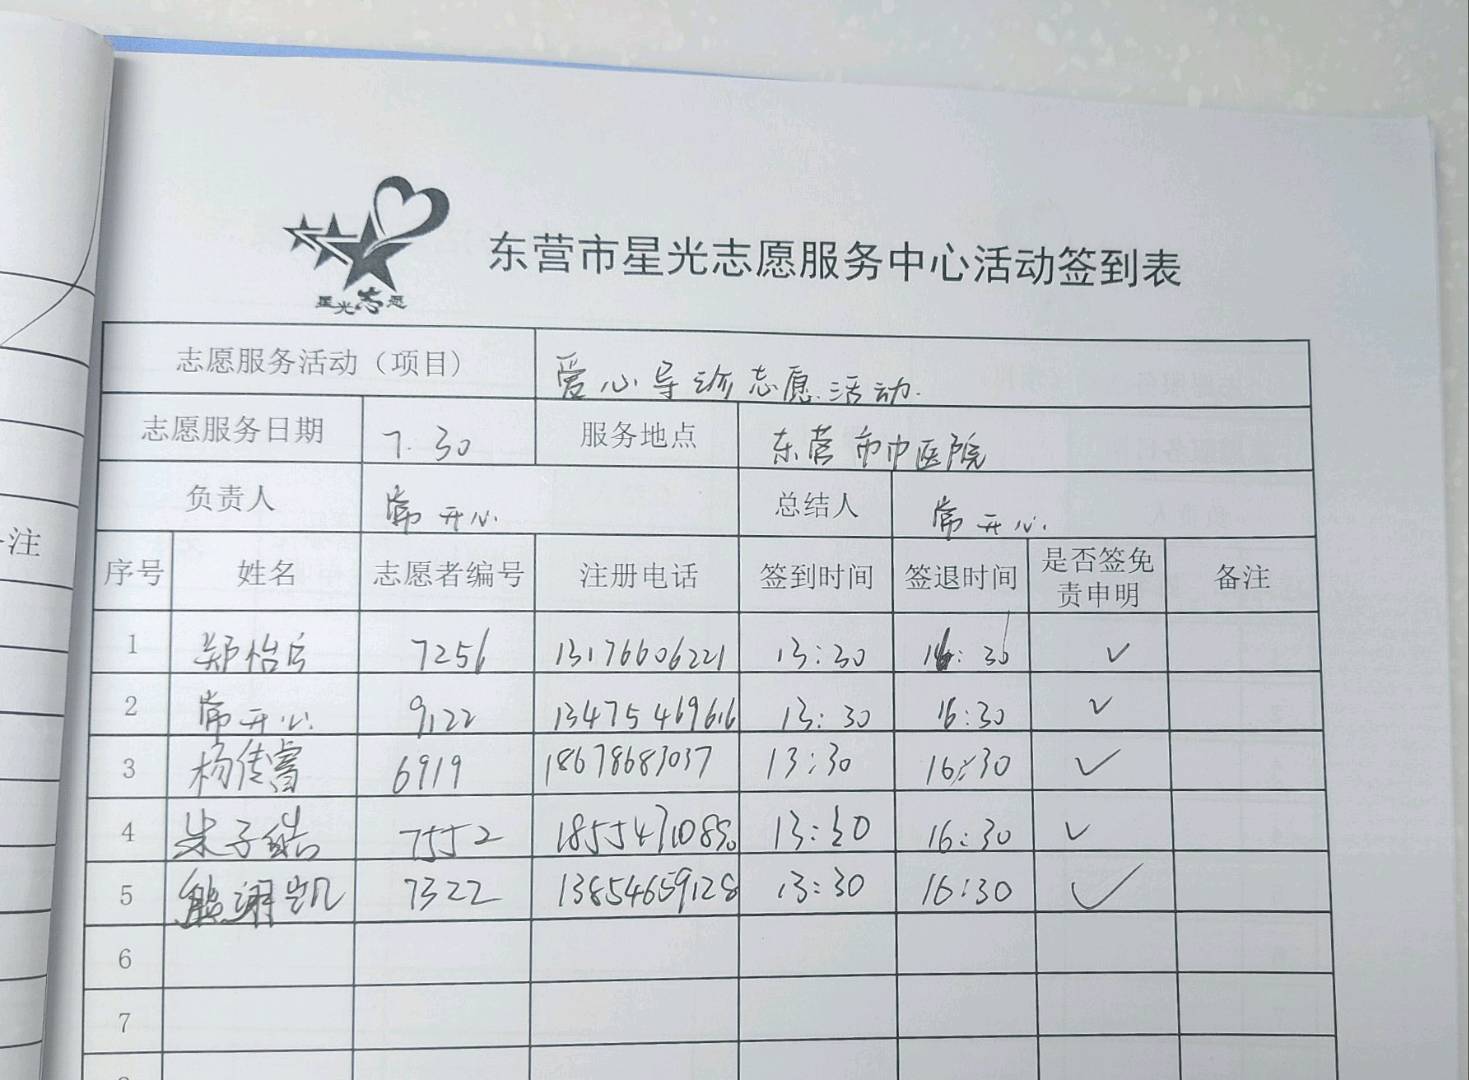 注
星光志愿
东营市星光志愿服务中心活动签到表
志愿服务活动（项目） 爱心导诊志愿活动.
志愿服务日期 7.30 服务地点 东营市中医院
负责人 常开心 总结人 常开心.
序号 姓名 志愿者编号 注册电话 签到时间 签退时间 是否签免责申明 备注
1 郑怡兵 7256 13176606221 13:30 16:30 ✓
2 常开心. 9122 13475469616 13:30 16:30 ✓
3 杨传睿 6919 18678683037 13:30 16:30 ✓
4 朱子皓 7552 18554710850 13:30 16:30 ✓
5 熊翊凯 7322 13854659128 13:30 16:30 ✓
6
7